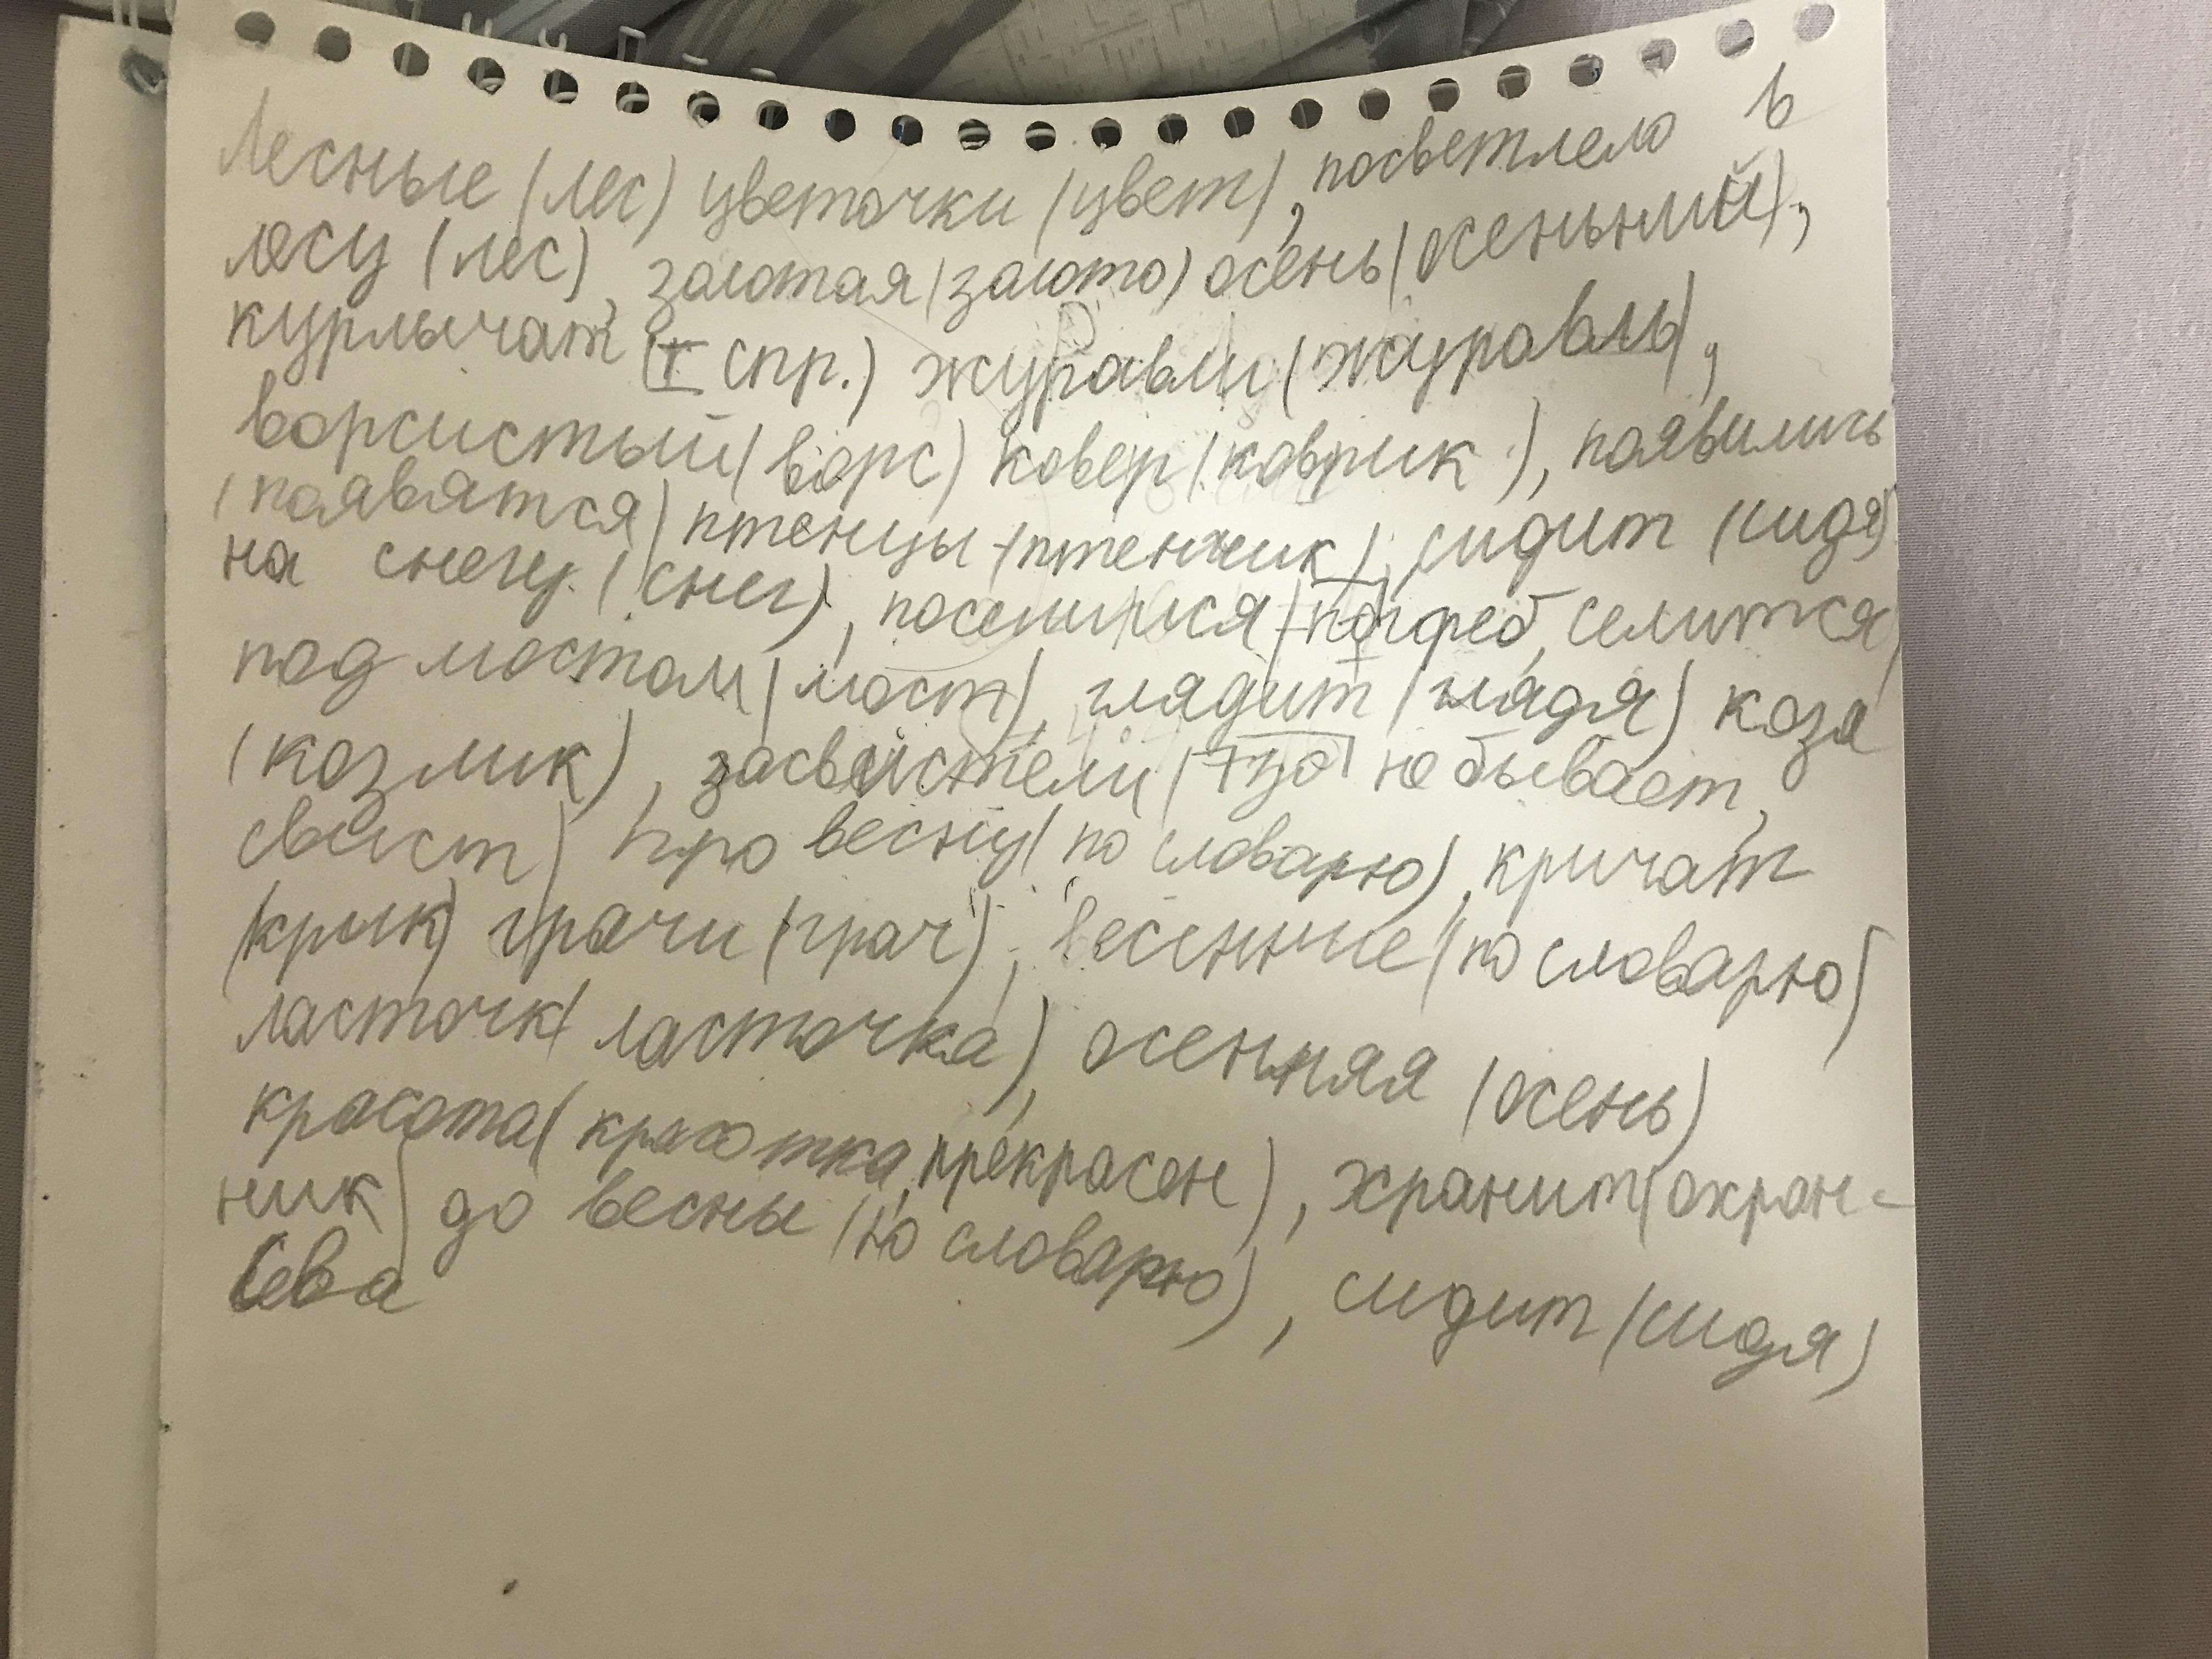 Лесные (лес) цветочки (цвет), посветлело в
лесу (лес), золотая (золото) осень (осеньний),
курлычат (I спр.) журавли (журавль),
ворсистый (ворс) ковер (коврик), появились
(появятся) птенцы (птенчик), сидит (сидя)
на снегу (снег), поселился (по преф, селится)
под мостом (мост), глядит (глядя) коза
(козлик), засвистели (зо не бывает,
свист) про весну (по словарю), кричат
(крик) грачи (грач), весенние (по словарю)
ласточк (ласточка), осенняя (осень)
красота (красотка, прекрасен), хранит (охран-
ник) до весны (по словарю), сидит (сидя)
Сова